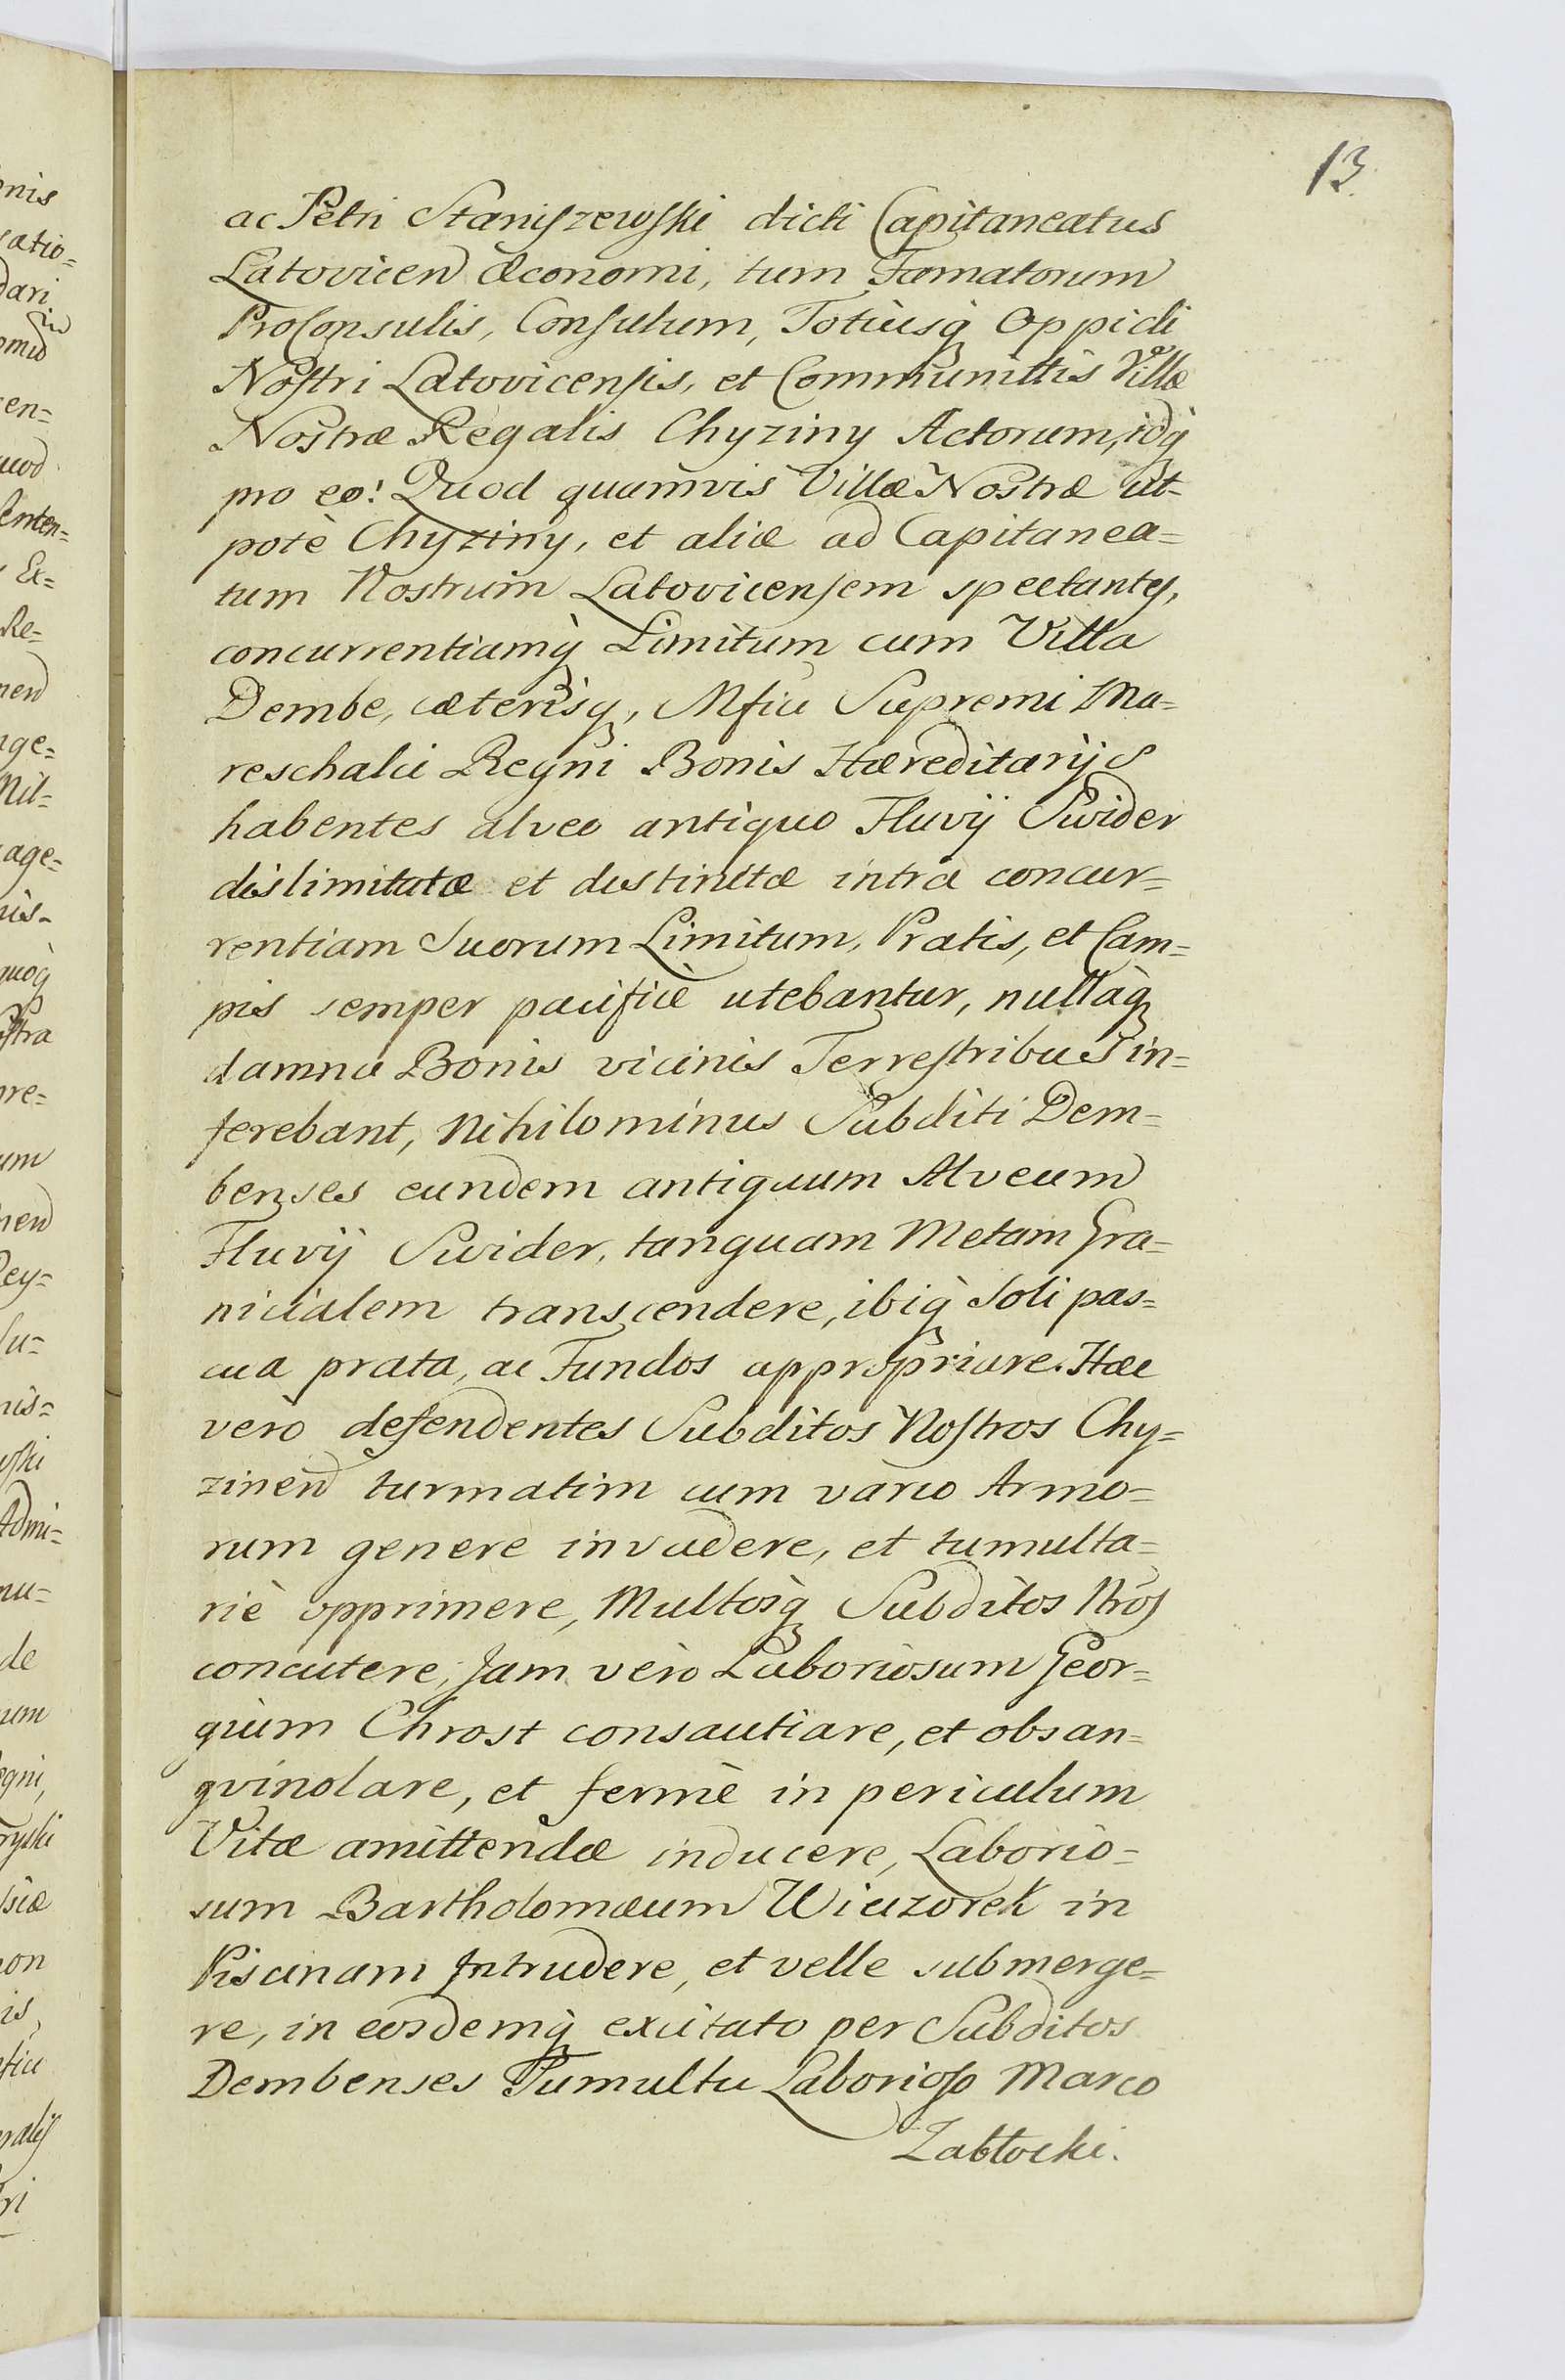 13.
ac Petri Staniszewski dicti Capitaneatus
Latovicen Œconomi, tum Famatorum
ProConsulis, Consulum, Totiusq, Oppidi
Nostri Latovicensis, et Communittis Villæ
Nostræ Regalis Chyziny Actorum, idq
pro eo! Quod quamvis Villæ Nostræ ut-
potè Chyziny, et aliæ ad Capitanea=
tum Nostrum Latovicensem spectantes,
concurrentiamq Limitum cum Villa
Dembe, cæterisq, Mfici Supremi Ma=
reschalci Regni Bonis Hæreditarijs
habentes alveo antiquo Fluvij Swider
dislimitatæ et distinctæ intra concur=
rentiam Suorum Limitum, Pratis, et Cam=
pis semper pacificè utebantur, nullaq
damna Bonis vicinis Terrestribus in=
ferebant, Nihilominus Subditi Dem=
benses eundem antiquum Alveum
Fluvij Swider, tanquam Metam Gra=
nicialem transcendere, ibiq Soli pas=
cua prata, ac Fundos appropriare. Hæc
verò defendentes Subditos Nostros Chy=
zinen turmatim cum vario Armo=
rum genere invadere, et tumulta=
riè opprimere, Multosq Subditos Nros
concutere, Jam verò Laboriosum Geor=
gium Chrost consautiare, et obsan=
gvinolare, et fermè in periculum
Vitæ amittendæ inducere, Laborio=
sum Bartholomæum Wieczorek in
Piscinam Intrudere, et velle submerge=
re, in eosdemq excitato per Subditos
Dembenses Tumultu Laborioso Marco
Zabłocki.